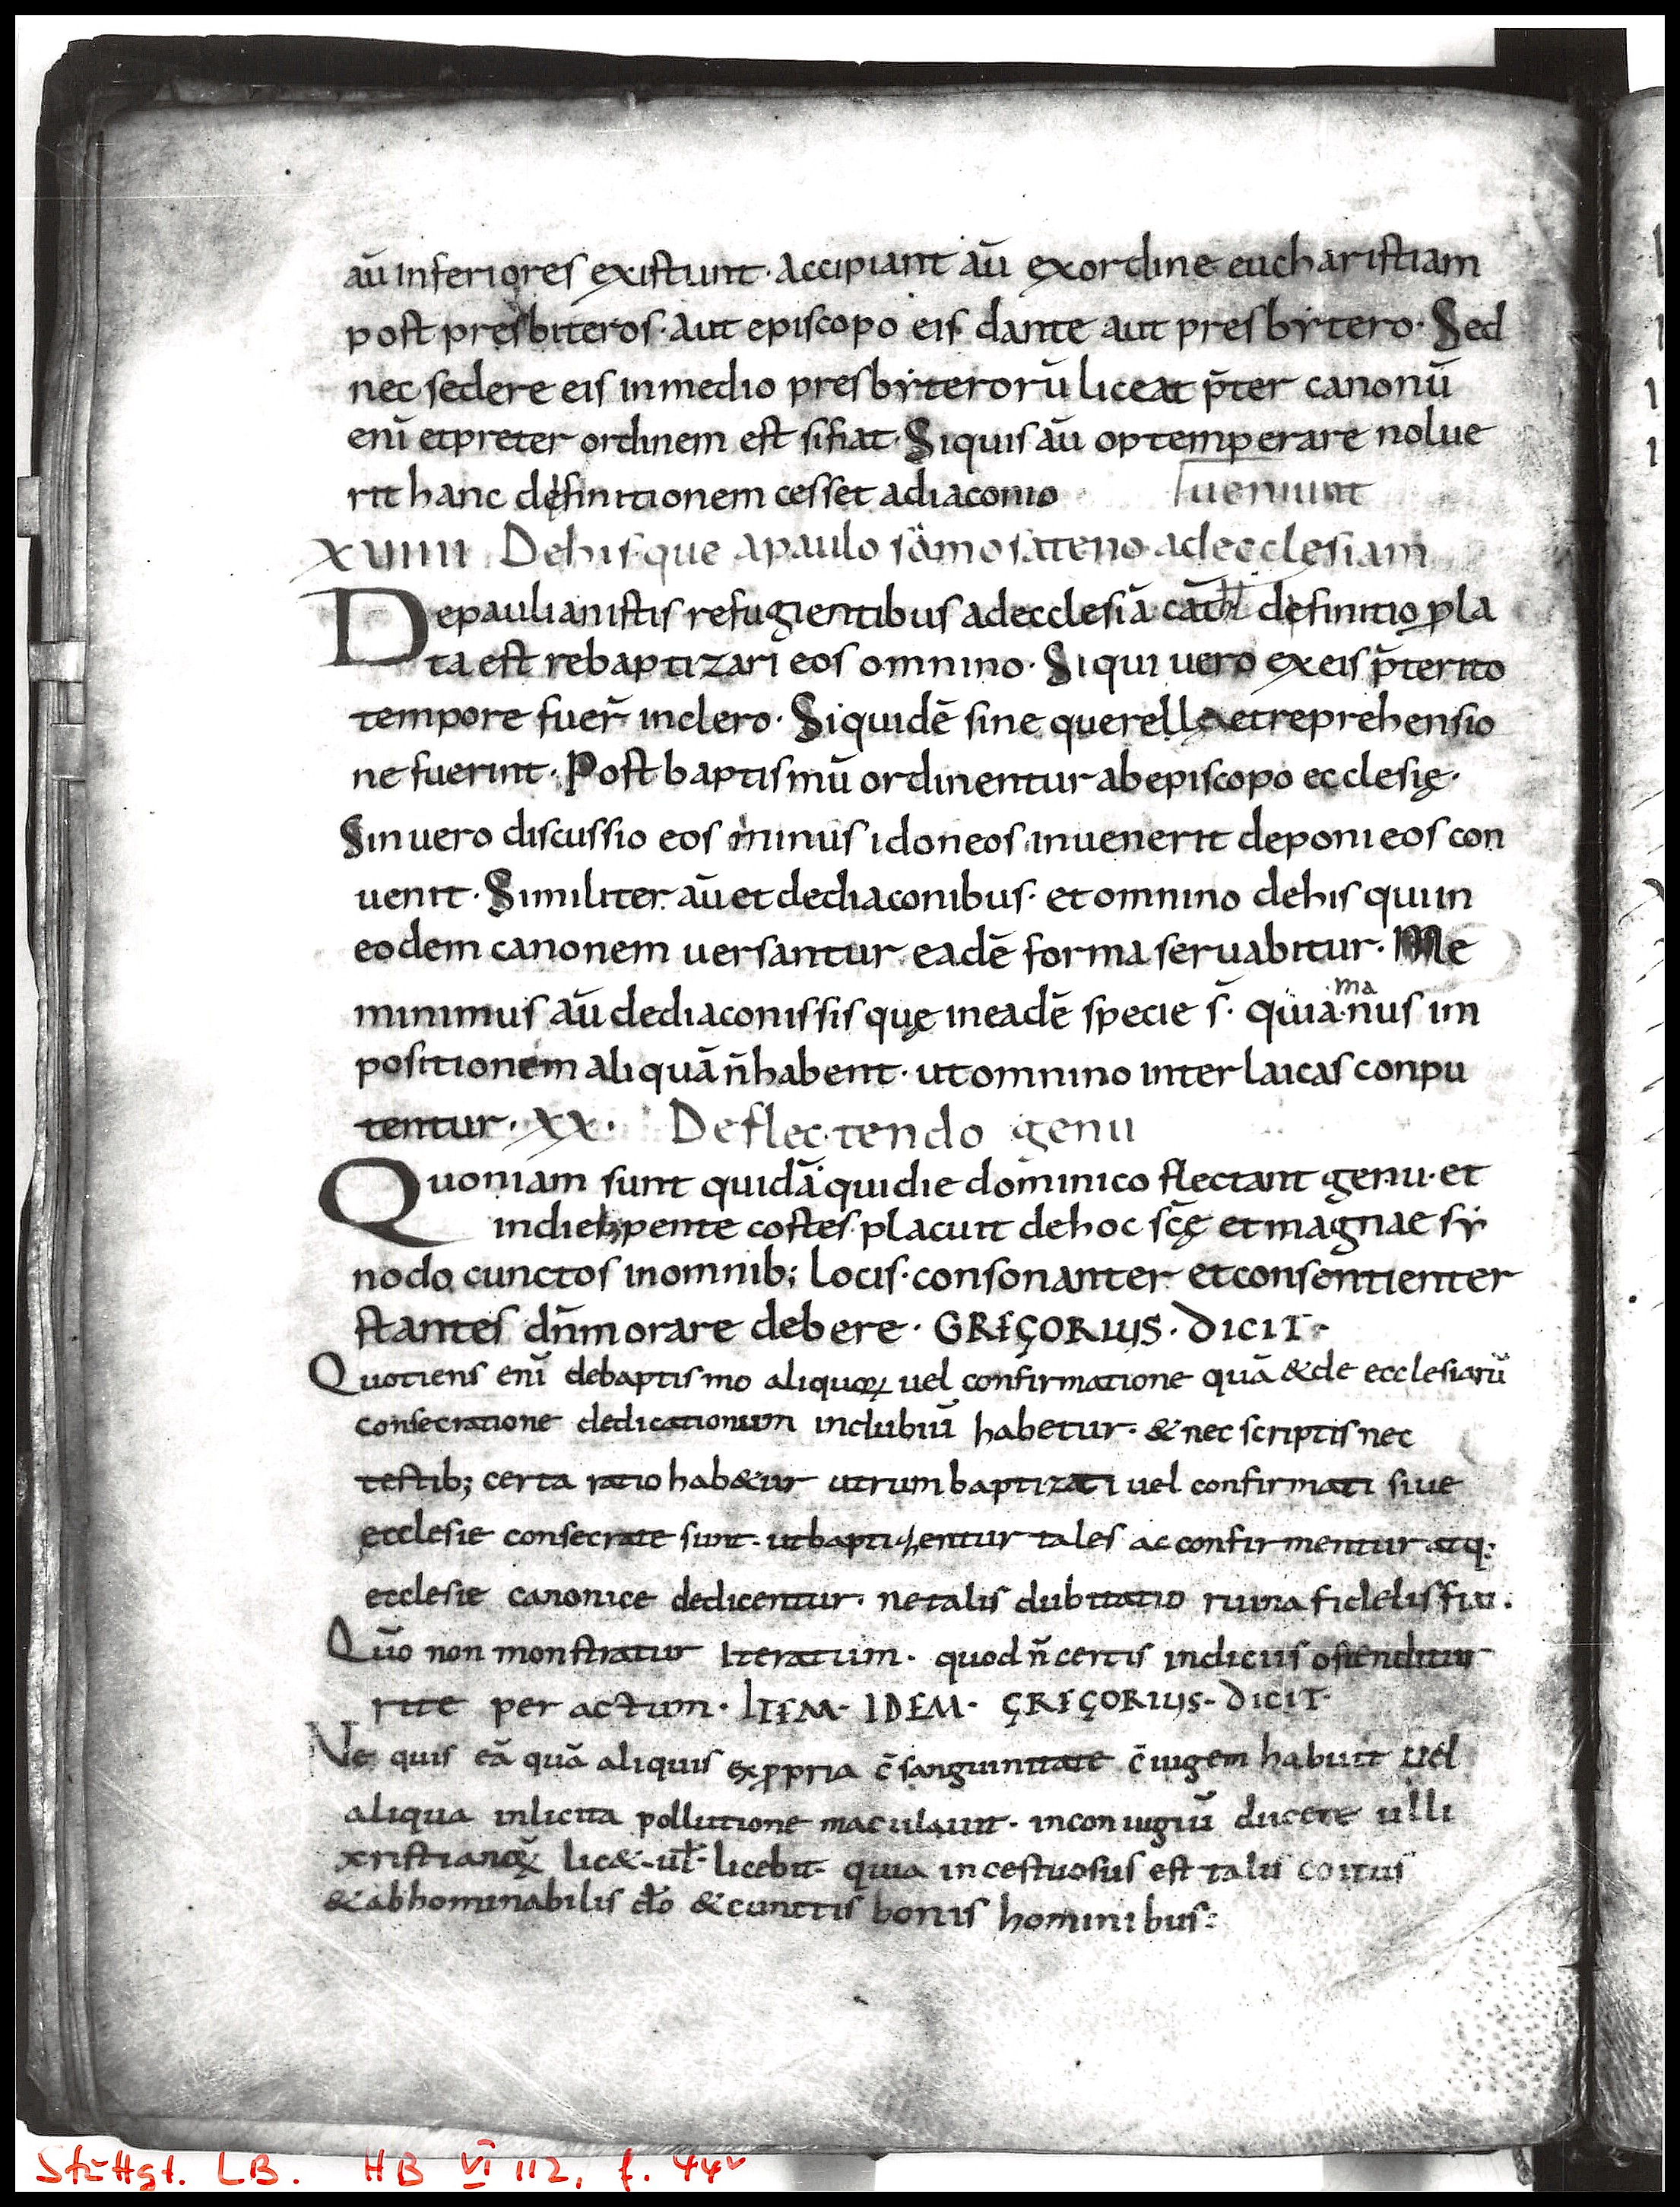 aū inferiores existunt· Accipiant aū exordine eucharistiam
post presbiteros· Aut episcopo eis dante aut presbẏtero· Sed
nec sedere eis inmedio presbẏterorū liceat p̄ter canonū
enī etpreter ordinem est sifiat· Siquis aū optemperare nolue
rit hanc definitionem cesset adiaconio
ueniunt
XVIIII Dehis que apaulo samosateno adecclesiam
Depaulianistis refugientibus adecclesiā cath definitio pla
ta est rebaptizari eos omnino· Siqui uero exeis p̄terito
tempore fuer̄ inclero· Siquidē sine querella etreprehensio
ne fuerint· Post baptismū ordinentur abepiscopo ecclesię·
Sin uero discussio eos minus idoneos inuenerit deponi eos con
uenit· Similiter aū et dediaconibus· et omnino dehis quiin
eodem canonem uersantur eadē forma seruabitur· Me
minimus aū dediaconissis quę ineadē specie s̄· quia ·ma·nus im
positionem aliquā n̄habent· utomnino inter laicas conpu
tentur· XX· Deflectendo genu
Quoniam sunt quidā quidie dominico flectant genu· et
indieb; pentecostes placuit dehoc sc̄ę et magnae sẏ
nodo cunctos inomnib; locis· consonanter etconsentienter
stantes dn̄m orare debere· GREGORIUS· DICIT·
Quotiens enī debaptismo aliquoꝝ uel confirmatione quā & de ecclesiarū
consecratione dedicationum indubiū habetur· & nec scriptis nec
testib; certa ratio hab&ur utrum baptizati uel confirmati siue
ecclesie consecrate sunt· utbaptizentur tales ac confirmentur atq;
ecclesie canonice dedicentur· netalis dubitatio ruina fidelis fiat·
Qūo non monstratur Iteratum· quod n̄ certis indiciis ostenditur
rite per actum· ITEM· IDEM· GREGORIUS· DICIT·
Ne quis eā quā aliquis exꝓpria c̄sanguinitate c̄iugem habuit uel
aliqua inlicita pollutione maculauit· inconiugiū ducere ulli
xristianoꝝ lic&· ul̄· licebit· quia incestuosus est talis coitus
& abhominabilis dō & cunctis bonis hominibus:
Stuttgt. LB. HB VI 112, f. 44v